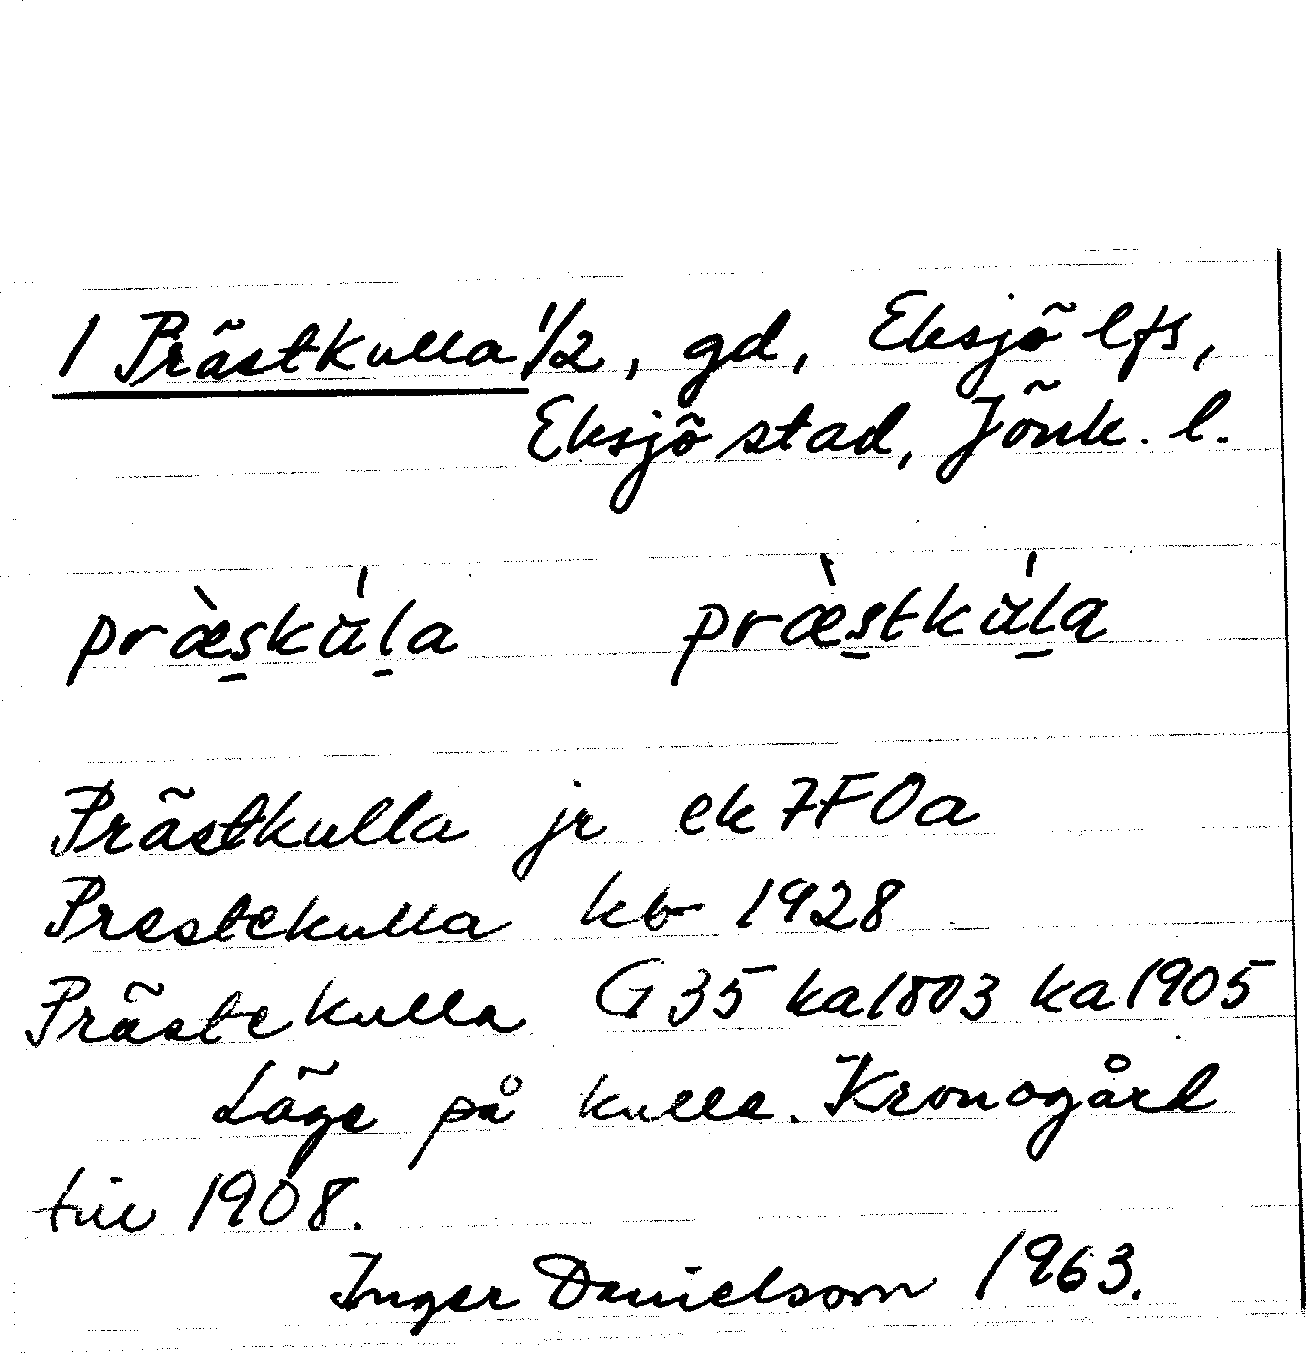 1 Prästkulla 1/2, gd, Eksjö lfs,
Eksjö stad, Jönk. l.
præ̀skù́la præ̀stkù́la
Prästkulla jr ek 7F0a
Prestekulla kb 1928
Prästekulla G35 ka1803 ka1905
Läge på kulle. Kronogård
till 1908.
Inger Danielsson 1963.